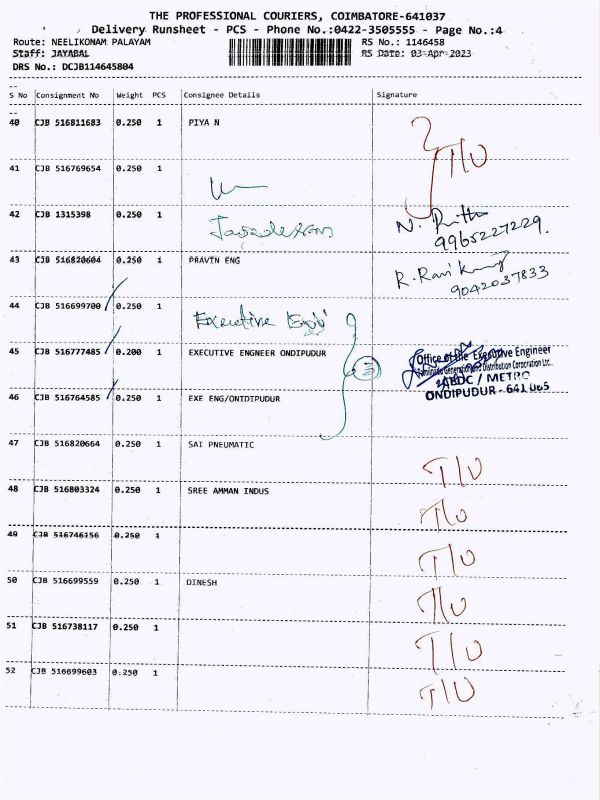 THE PROFESSIONAL COURIERS, COIMBATORE-641037
Delivery Runsheet - PCS - Phone No.:0422-3505555 - Page No.:4
Route: NEELIKONAM PALAYAM RS No.: 1146458
Staff: JAYABAL RS Date: 03-Apr-2023
DRS No.: DCJB114645804
S No Consignment No Weight PCS Consignee Details Signature
40 CJB 516811683 0.250 1 PIYA N
T/U
41 CJB 516769654 0.250 1
42 CJB 1315398 0.250 1 N.
9965227229.
43 CJB 516820604 0.250 1 PRAVIN ENG R. Ravi Kumar
9042037833
44 CJB 516699700 0.250 1 Executive Eng
45 CJB 516777485 0.200 1 EXECUTIVE ENGNEER ONDIPUDUR 3 Office of the Executive Engineer
Tamilnadu Generation and Distribution Corporation Ltd.,
/ METRO
ONDIPUDUR - 641 005
46 CJB 516764585 0.250 1 EXE ENG/ONIDIPUDUR
47 CJB 516820664 0.250 1 SAI PNEUMATIC T/U
48 CJB 516803324 0.250 1 SREE AMMAN INDUS T/U
49 CJB 516746156 0.250 1 T/U
50 CJB 516699559 0.250 1 DINESH T/U
51 CJB 516738117 0.250 1 T/U
52 CJB 516699603 0.250 1 T/U